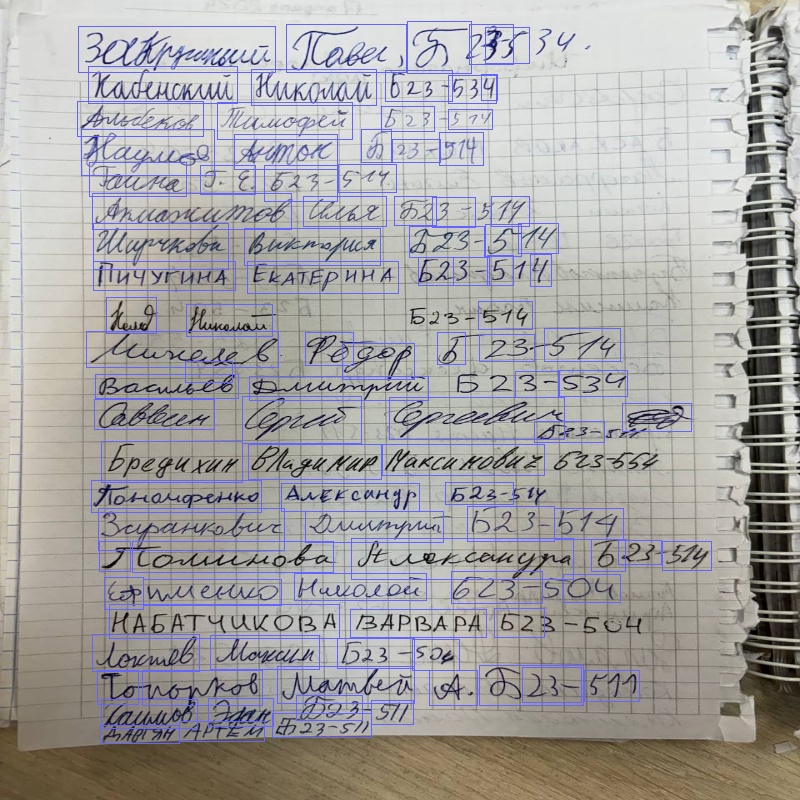 Павел, Б23-534.
Кабенский Николай Б23-534
Альбеков Тимофей Б23-514
Наумов Антон Б23-514
Ганна Г. Е. Б23-514
Илья Б23-514
Ширчкова Виктория Б23-514
ПИЧУГИНА ЕКАТЕРИНА Б23-514
Николай Б23-514
Фёдор Б 23-514
Васильев Дмитрий Б23-534
Саввин Сергей Сергеевич Б23-511
Бредихин Владимир Максимович Б23-564
Пономаренко Александр Б23-514
Заранкович Дмитрий Б23-514
Поминова Александра Б23-514
Ефименко Николай Б23-504
НАБАТЧИКОВА ВАРВАРА Б23-504
Локтев Максим Б23-504
Топорков Матвей А. Б23-511
Б23-511
АРТЁМ Б23-511